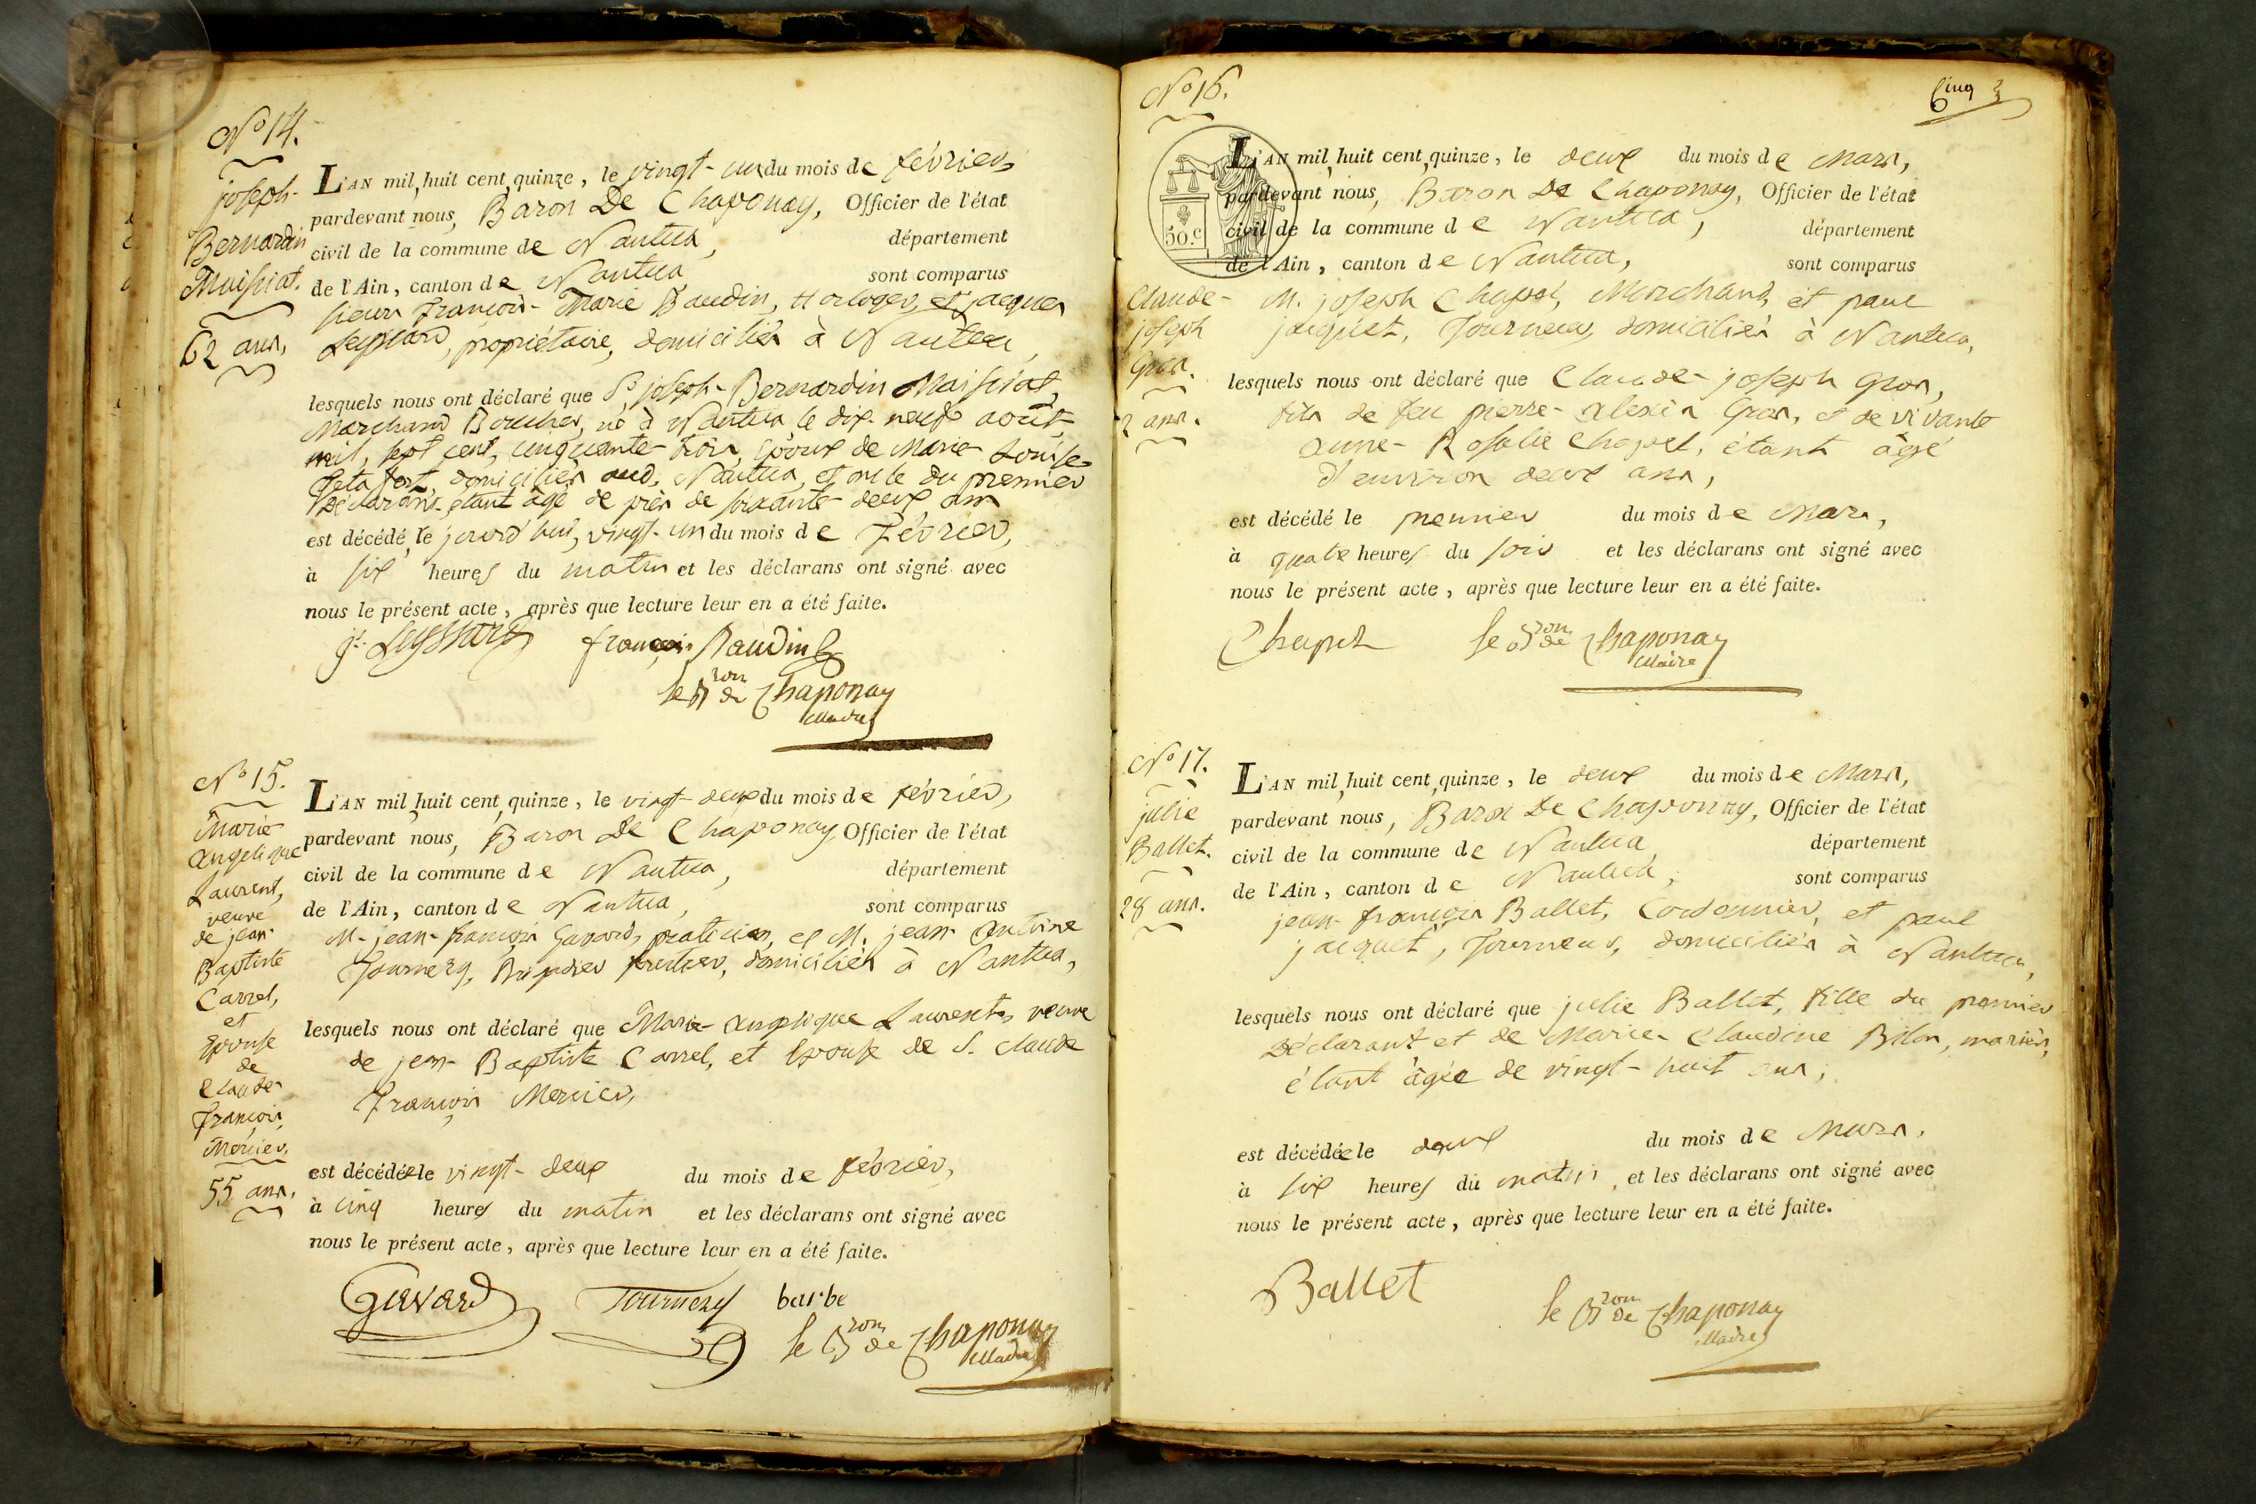 No 14.
joseph-
Bernardin
Maissiat.
62 ans,
L'AN mil huit cent quinze, le vingt-un du mois de février,
pardevant nous, Baron De Chaponay, Officier de l'état
civil de la commune de Nantua, département
de l'Ain, canton de Nantua sont comparus
sieurs François-Marie Baudin, Horloger, et jacques
propriétaire, domiciliés à Nantua,
lesquels nous ont déclaré que Sr joseph-Bernardin Maissiat,
Marchand Boucher, né à Nantua le dix-neuf août
mil, sept cent, cinquante-trois, époux de Marie Louise
domiciliés aud. Nantua, et oncle du premier
Déclarant, étant âgé de près de soixante-deux ans
est décédé, le jourd'hui, vingt-un du mois de Février,
à six heures du matin et les déclarans ont signé avec
nous le présent acte, après que lecture leur en a été faite.
françois Baudin
le Bron de Chaponay
Maire
No 15.
Marie
Angelique
Laurent,
veuve
de jean-
Baptiste
Carrel,
et
Epouse
de
Claude-
François,
Mercier.
55 ans.
L'AN mil huit cent quinze, le vingt-deux du mois de février,
pardevant nous, Baron De Chaponay, Officier de l'état
civil de la commune de Nantua, département
de l'Ain, canton de Nantua, sont comparus
M. jean-françois Gavard, praticien, et M. jean Antoine
Tournery, Brigadier forestier, domiciliés à Nantua,
lesquels nous ont déclaré que Marie-Angelique Laurent, veuve
de jean-Baptiste Carrel, et Epouse de S. Claude
François Mercier,
est décédée le vingt-deux du mois de février,
à cinq heures du matin et les déclarans ont signé avec
nous le présent acte, après que lecture leur en a été faite.
Gavard Tournery barbe
le Bron de Chaponay
Maire
No 16.
Cinq
Claude-
joseph
Gros.
2 ans.
50.c
L'AN mil huit cent quinze, le deux du mois de Mars,
pardevant nous, Baron De Chaponay, Officier de l'état
civil de la commune de Nantua, département
de l'Ain, canton de Nantua, sont comparus
M. joseph Chapel, Marchand, et paul
jacquet, Tourneur, domiciliés à Nantua,
lesquels nous ont déclaré que Claude-joseph Gros,
fils de feu pierre-alexis Gros, et de vivante
anne-Rosalie Chapel, étant âgé
d'environ deux ans,
est décédé le premier du mois de Mars,
à quatre heures du soir et les déclarans ont signé avec
nous le présent acte, après que lecture leur en a été faite.
Chapel le Bron de Chaponay
Maire
No 17.
julie
Ballet.
28 ans.
L'AN mil huit cent quinze, le deux du mois de Mars,
pardevant nous, Baron De Chaponay, Officier de l'état
civil de la commune de Nantua, département
de l'Ain, canton de Nantua, sont comparus
jean-françois Ballet, Cordonnier, et paul
jacquet, Tourneur, domiciliés à Nantua,
lesquels nous ont déclaré que julie Ballet, fille du premier
Déclarant et de Marie-Claudine mariés,
étant âgée de vingt-huit ans,
est décédée le deux du mois de Mars,
à six heures du matin, et les déclarans ont signé avec
nous le présent acte, après que lecture leur en a été faite.
Ballet le Bron de Chaponay
Maire